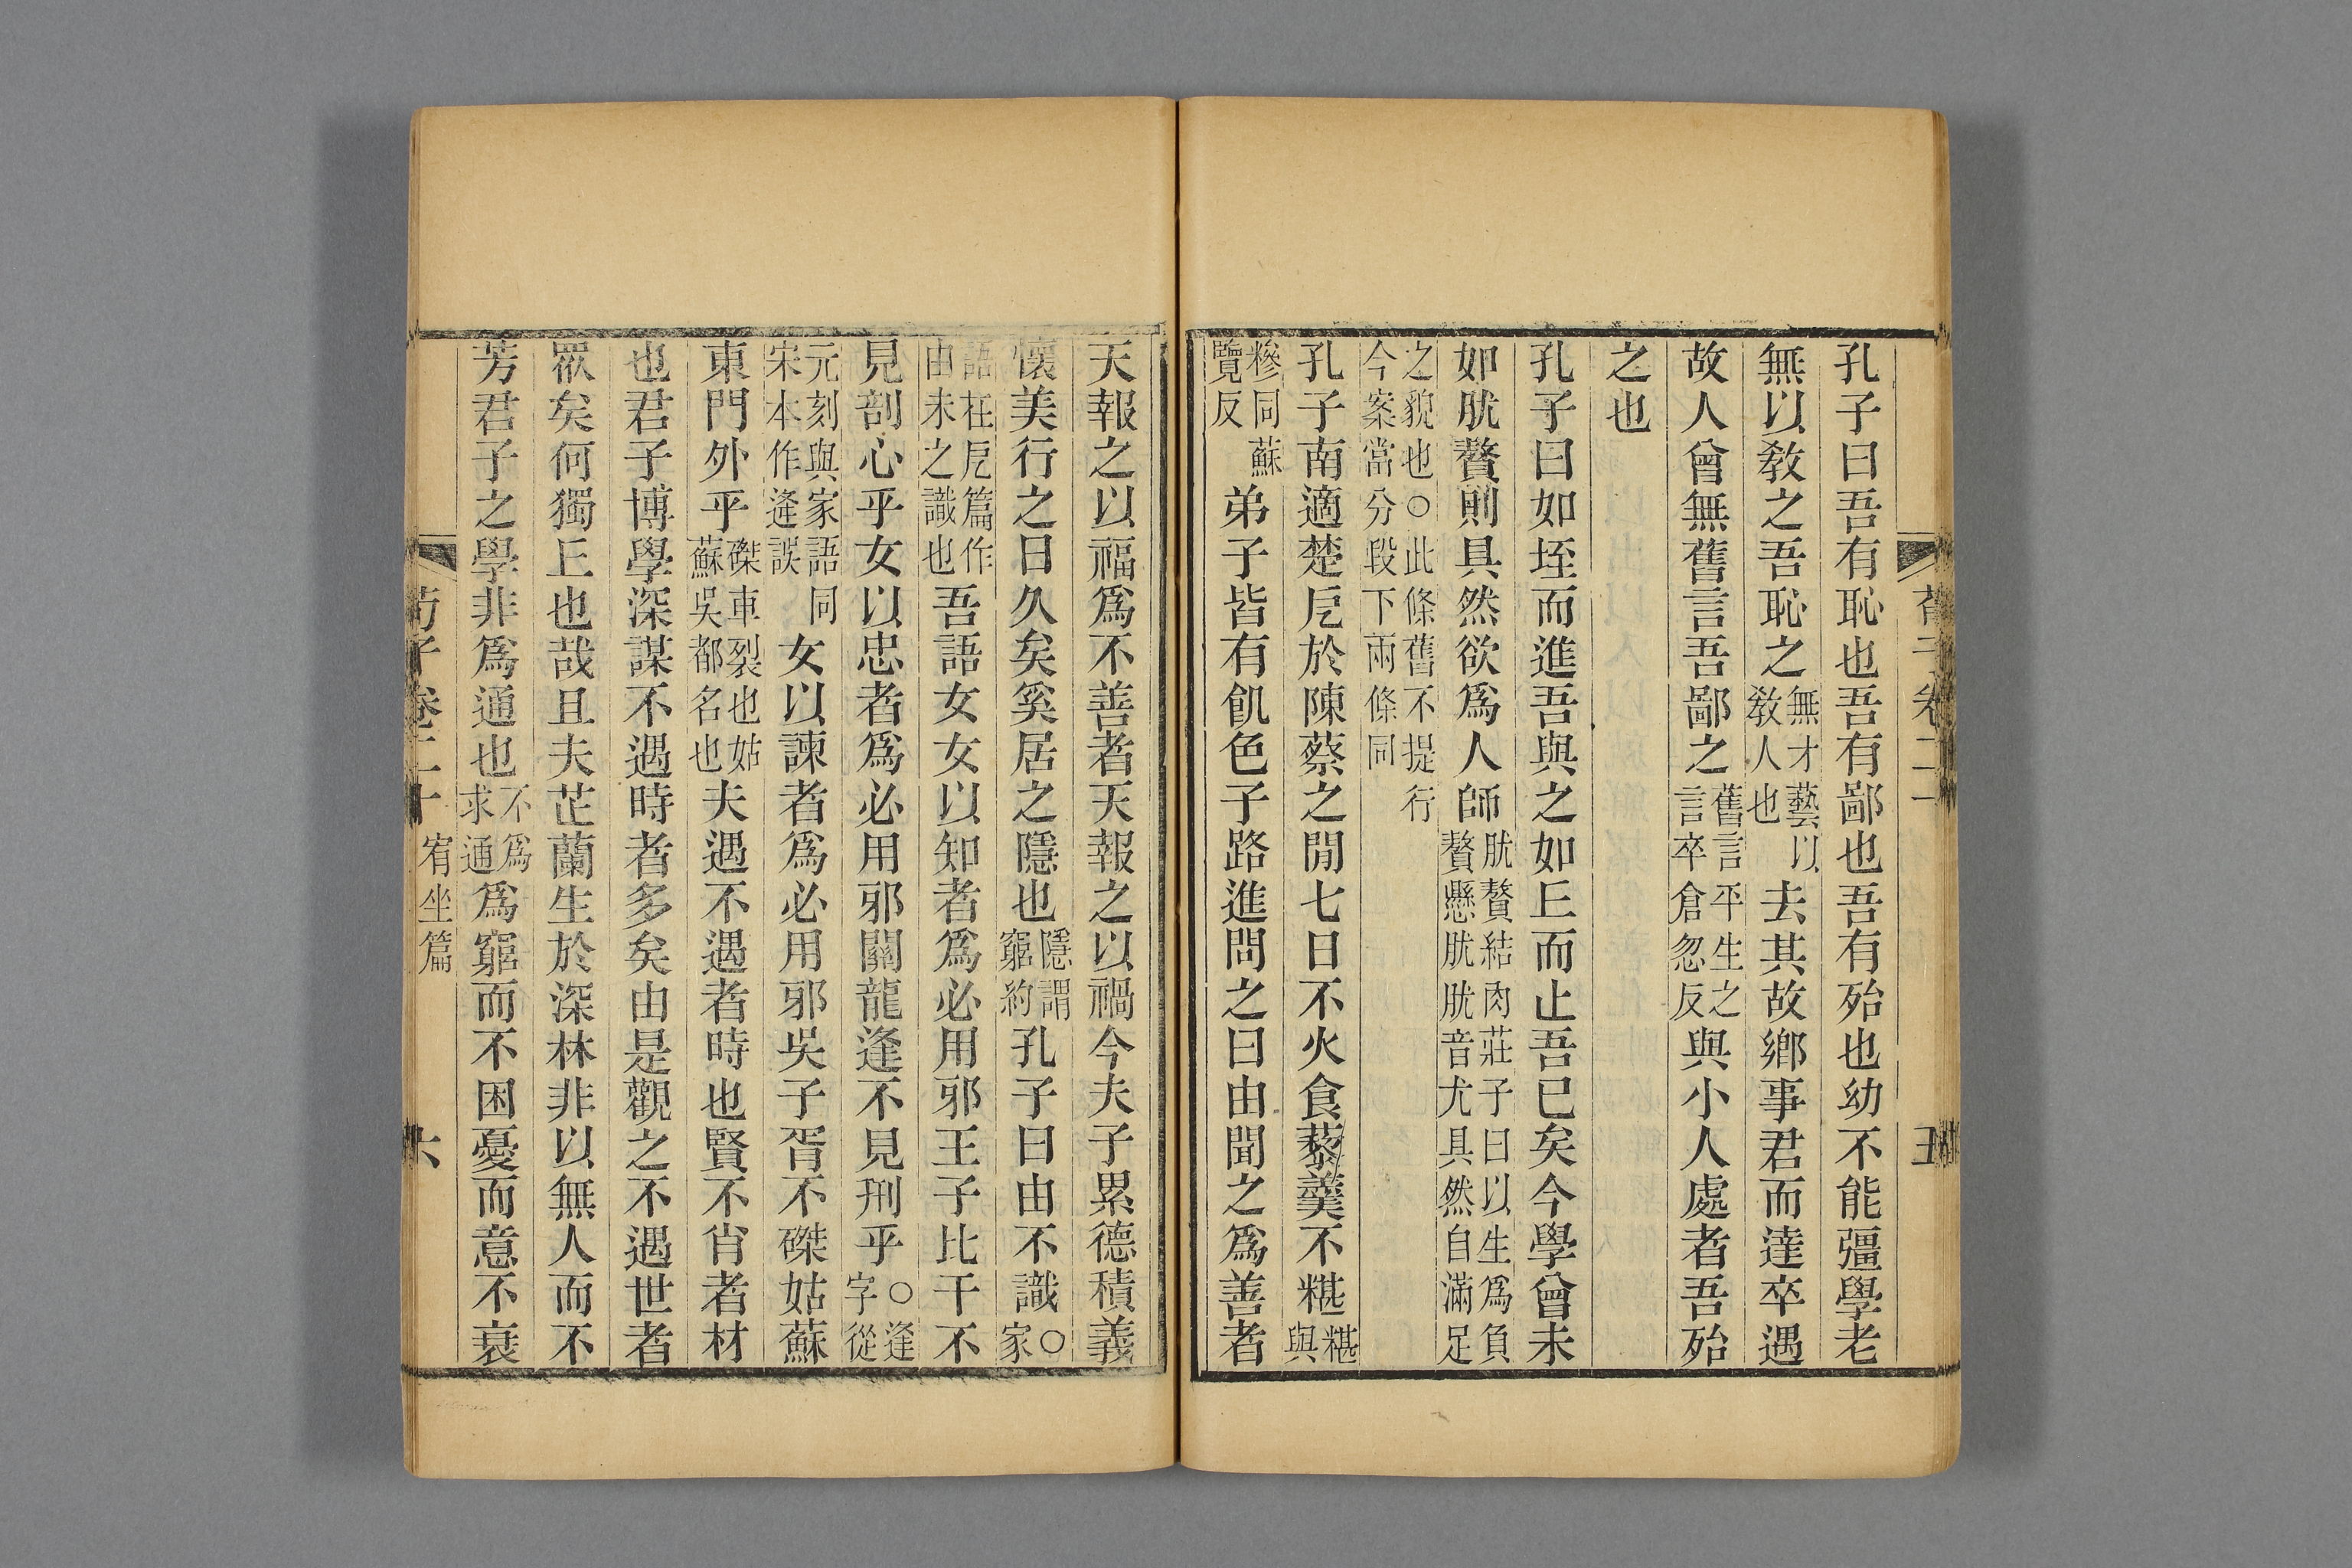 孔子曰吾有恥也吾有鄙也吾有殆也幼不能彊學老
無以敎之吾恥之無才藝以敎人也去其故鄉事君而達卒遇
故人曾無舊言吾鄙之舊言平生之言卒倉忽反與小人處者吾殆
之也
孔子曰如垤而進吾與之如𠀉而止吾已矣今學曾未
如肬贅則具然欲爲人師肬贅結肉莊子曰以生爲負贅懸肬肬音尤具然自滿足
之貌也○此條舊不提行今案當分段下兩條同
孔子南適楚戹於陳蔡之閒七日不火食藜羹不糂糂與
糝同蘇覽反弟子皆有飢色子路進問之曰由聞之爲善者
荀子卷二十
五
天報之以福爲不善者天報之以禍今夫子累德積義
懷美行之日久矣奚居之隱也隱謂窮約孔子曰由不識○家
語在戹篇作由未之識也吾語女女以知者爲必用邪王子比干不
見剖心乎女以忠者爲必用邪關龍逢不見刑乎○逢字從
元刻與家語同宋本作逄誤女以諫者爲必用邪吳子胥不磔姑蘇
東門外乎磔車裂也姑蘇吳都名也夫遇不遇者時也賢不肖者材
也君子博學深謀不遇時者多矣由是觀之不遇世者
眾矣何獨𠀉也哉且夫芷蘭生於深林非以無人而不
芳君子之學非爲通也不爲求通爲窮而不困憂而意不衰
荀子卷二十
宥坐篇
六